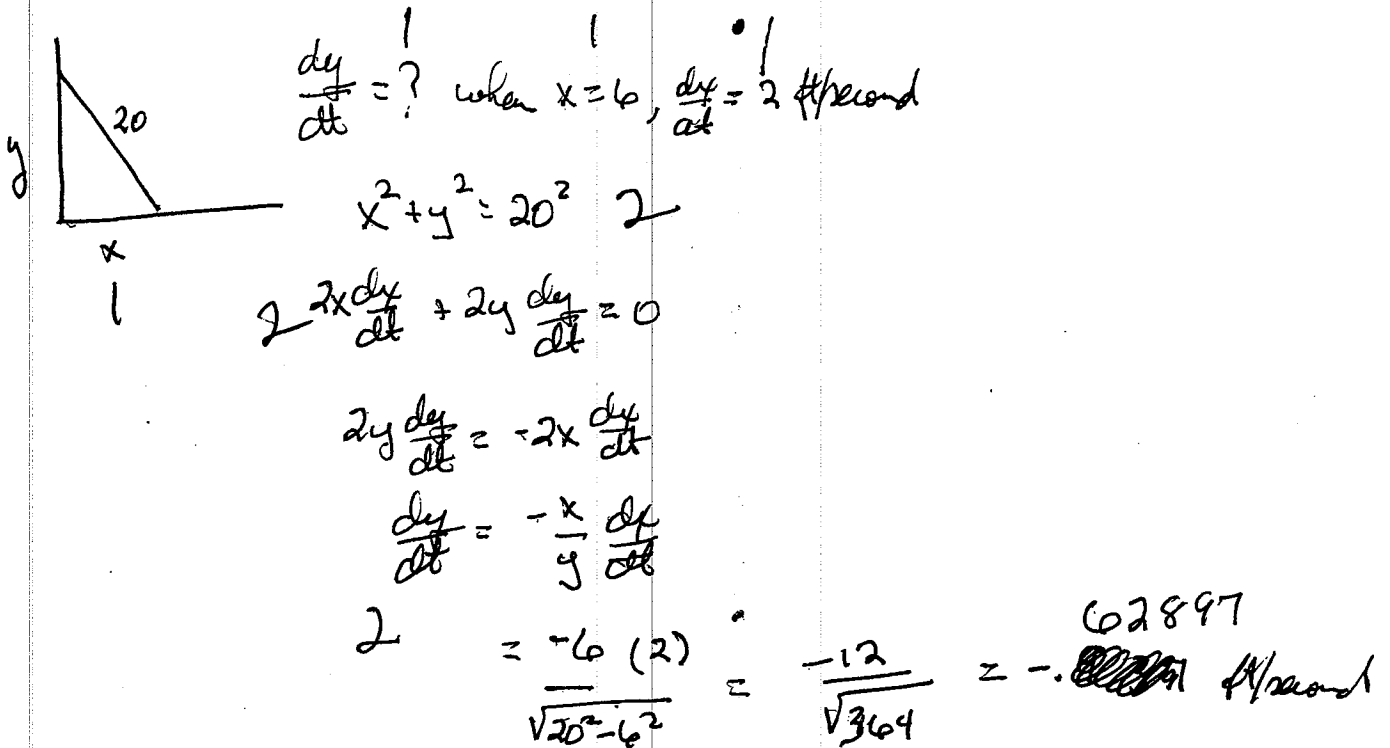 1 1 1
dy/dt = ? when x = 6, dx/dt = 2 ft/second
20
y
x² + y² = 20² 2
x
1
2 2x dx/dt + 2y dy/dt = 0
2y dy/dt = -2x dx/dt
dy/dt = -x/y dx/dt
62897
2 = -6 (2)/√20²-6² = -12/√364 = -. ft/second